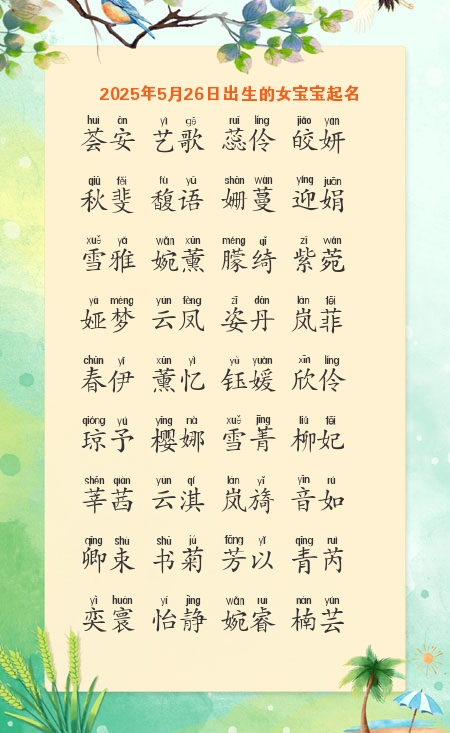 2025年5月26日出生的女宝宝起名
huì ān yì gē ruǐ líng jiǎo yán
荟安 艺歌 蕊伶 皎妍
qiū fěi fù yǔ shān wàn yíng juān
秋斐 馥语 姗蔓 迎娟
xuě yǎ wǎn xūn méng qǐ zǐ wǎn
雪雅 婉薰 朦绮 紫菀
yà mèng yún fèng zī dān lán fēi
娅梦 云凤 姿丹 岚菲
chūn yī xūn yì yù yuàn xīn líng
春伊 薰忆 钰媛 欣伶
qióng yǔ yīng nà xuě jīng liǔ fēi
琼予 樱娜 雪菁 柳妃
shēn qiàn yún qí lán yǐ yīn rú
莘茜 云淇 岚旖 音如
qīng shù shū jú fāng yǐ qīng ruì
卿束 书菊 芳以 青芮
yì huán yí jìng wǎn ruì nán yún
奕寰 怡静 婉睿 楠芸